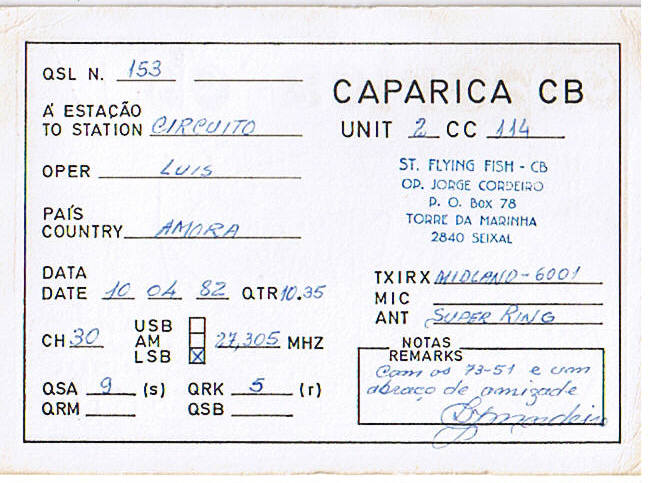 QSL N. 153
CAPARICA CB
UNIT 2 CC 114
Á ESTAÇÃO
TO STATION CIRCUITO
OPER LUIS
ST. FLYING FISH - CB
OP. JORGE CORDEIRO
P. O. Box 78
TORRE DA MARINHA
2840 SEIXAL
PAÍS
COUNTRY AMORA
DATA
DATE 10 04 82 QTR 10.35
TXIRX MIDLAND-6001
MIC
ANT SUPER RING
CH 30 USB
AM
LSB X 27,305 MHZ
QSA 9 (s) QRK 5 (r)
QRM QSB
NOTAS
REMARKS
Com os 73-51 e um
abraço de amizade